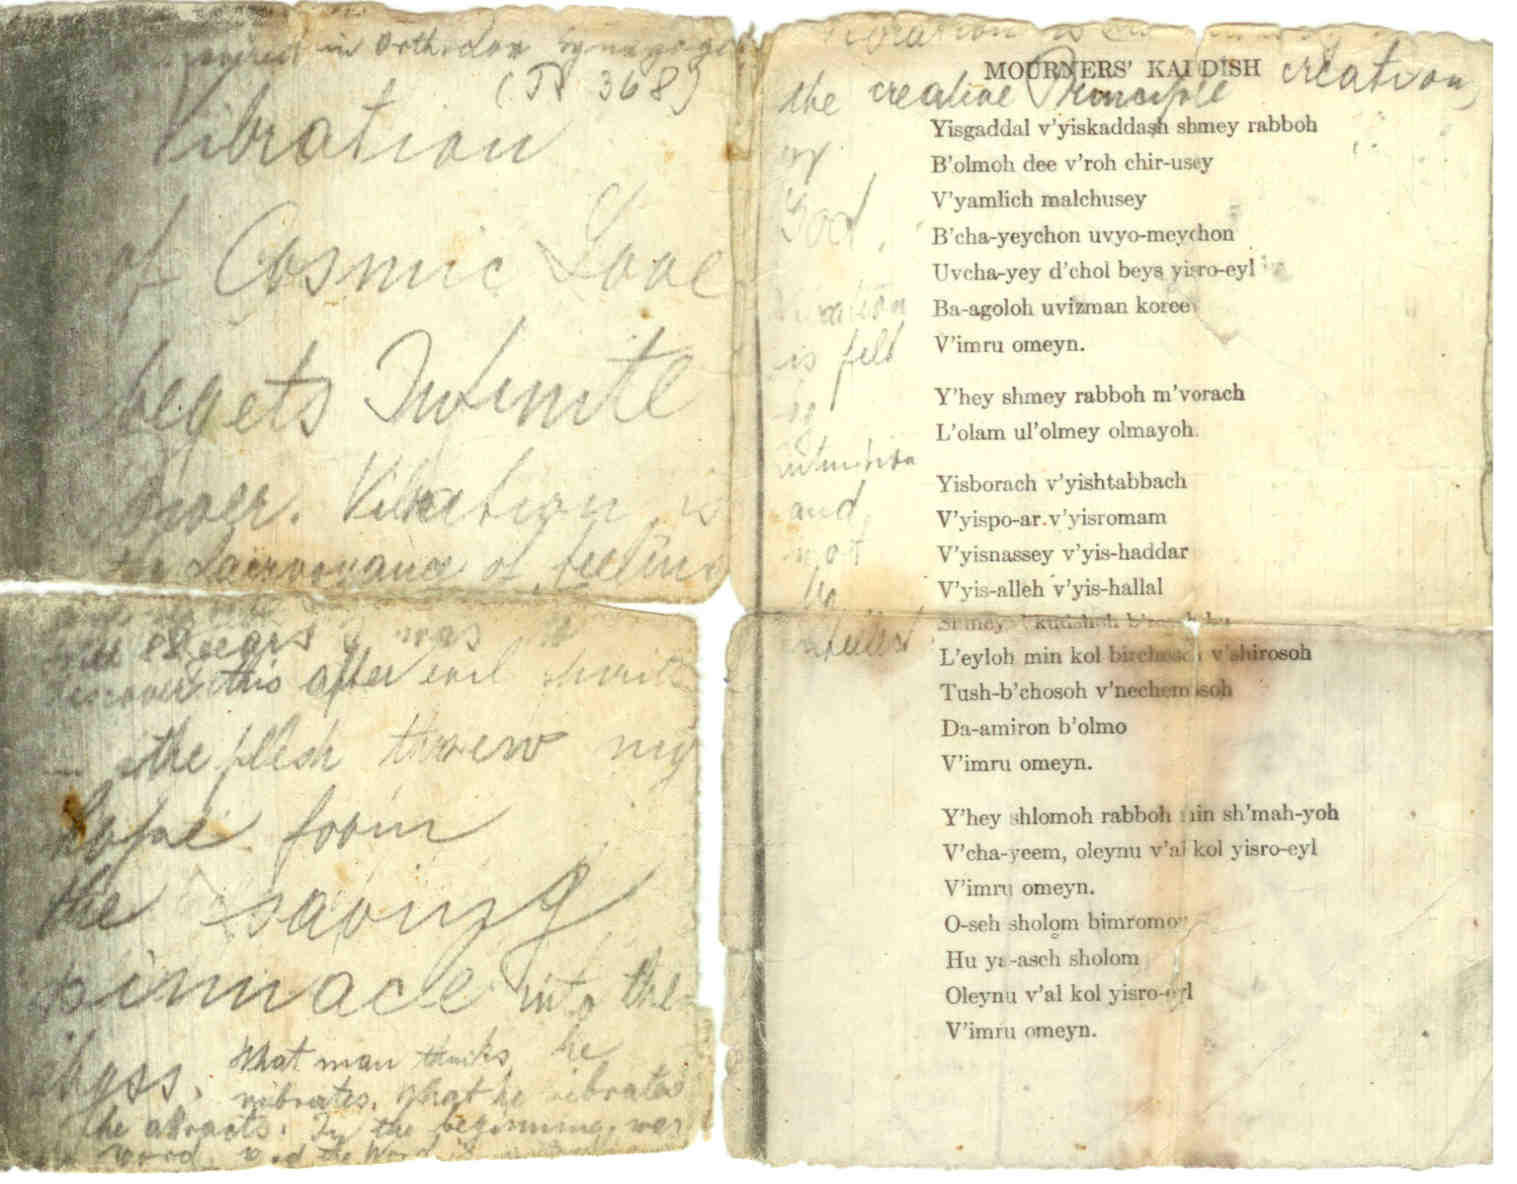 in Orthodox Synagoge
(P 368)
Vibration
of Cosmic Love
begets Infinite
Power. Vibration is
of feeling
8 years I was
discover this after evil
the flesh threw my
hope from
the saving
pinnace into the
abyss. What man thinks he
vibrates. What he vibrates
he attracts. In the beginning was
word, and the Word is
vibration is
MOURNERS' KADDISH creation,
the creative Principle
or
God.
Vibration
is felt
by
intuition
and
not
by
intellect
Yisgaddal v'yiskaddash shmey rabboh
B'olmoh dee v'roh chir-usey
V'yamlich malchusey
B'cha-yeychon uvyo-meychon
Uvcha-yey d'chol beys yisro-eyl
Ba-agoloh uvizman koreev
V'imru omeyn.
Y'hey shmey rabboh m'vorach
L'olam ul'olmey olmayoh.
Yisborach v'yishtabbach
V'yispo-ar v'yisromam
V'yisnassey v'yis-haddar
V'yis-alleh v'yis-hallal
Shmey d'kudshoh b'reech hu
L'eyloh min kol birchosoh v'shirosoh
Tush-b'chosoh v'nechemosoh
Da-amiron b'olmo
V'imru omeyn.
Y'hey shlomoh rabboh min sh'mah-yoh
V'cha-yeem, oleynu v'al kol yisro-eyl
V'imru omeyn.
O-seh sholom bimromov
Hu ya-aseh sholom
Oleynu v'al kol yisro-eyl
V'imru omeyn.